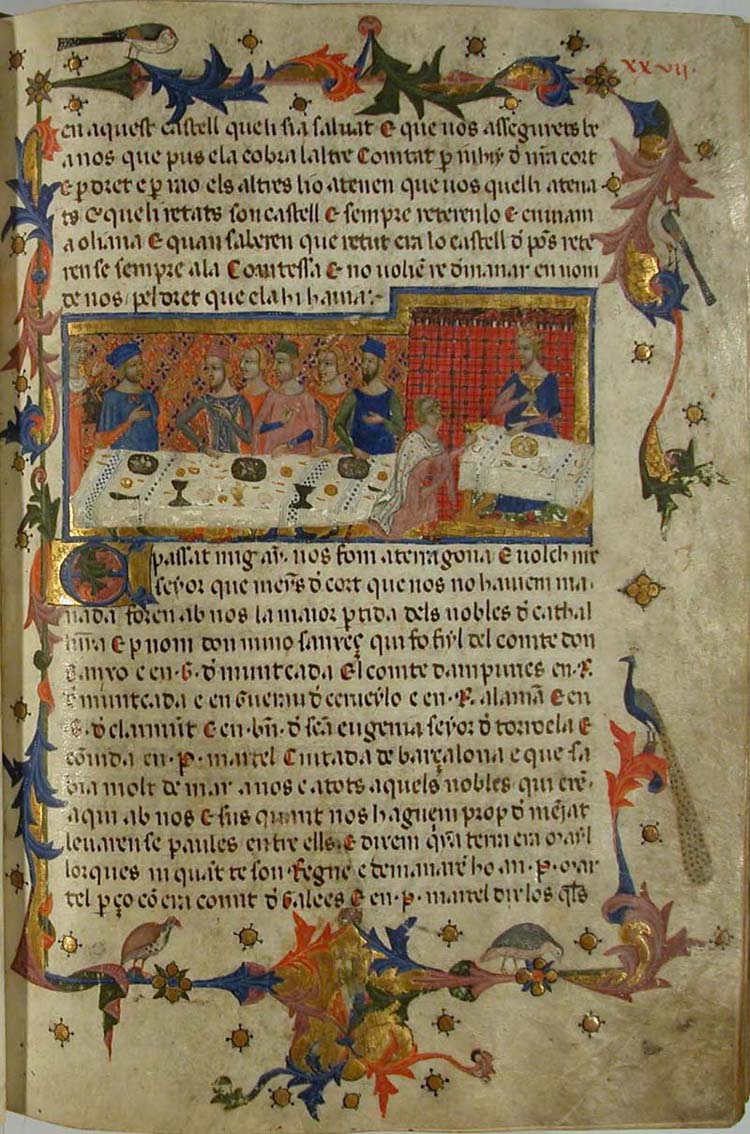 xxvij.
en aquest castell que li sia saluat E que uos assegurets be
a nos que pus ela cobra laltre Comtat per
E per dret e per els altres ho atenen que uos quelli atena
ts E que li retats son castell E sempre reteren lo E eniuam
a oliana E quan saberen que retut era lo castell de pons rete
ren se sempre ala Comtessa E no uolien re demanar en nom
de nos pel dret que ela hi hauia.
passat mig nos fom a terragona E uolch nre
senyor que meyns de cort que nos no hauiem ma
nada foren ab nos la maior partida dels nobles de cathal
E per nom don nuno sanxeç qui fo fiyl del comte don
sanxo e en .G. de muntcada El comte dampuries en .R.
de muntcada e en Guerau de cerueylo e en .R. alaman E en
.G. de claramunt E en .bn. de sca eugenia seyor de torroela E
en .P. martel Ciutada de barçalona e que sa
bia molt de mar a nos e a tots aquels nobles qui eren
aqui ab nos E sus quant nos haguem prop de meniat
leuaren se paules entre ells E dixem quina terra era mayl
lorques ni quant te son Regne e demanaren ho a .P. mar
tel per ço com era comit de Galees E en .P. martel dix los qls